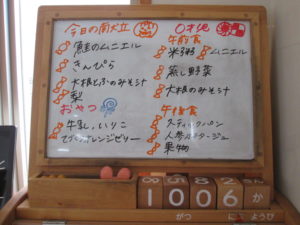 今日の献立
鮭のムニエル
きんぴら
大根とふのみそ汁
梨
おやつ
牛乳、いりこ
オレンジゼリー
0才児
午前食
米粥 ムニエル
蒸し野菜
大根のみそ汁
午後食
スティックパン
人参ポタージュ
果物
10 06 か
がつ にち ようび